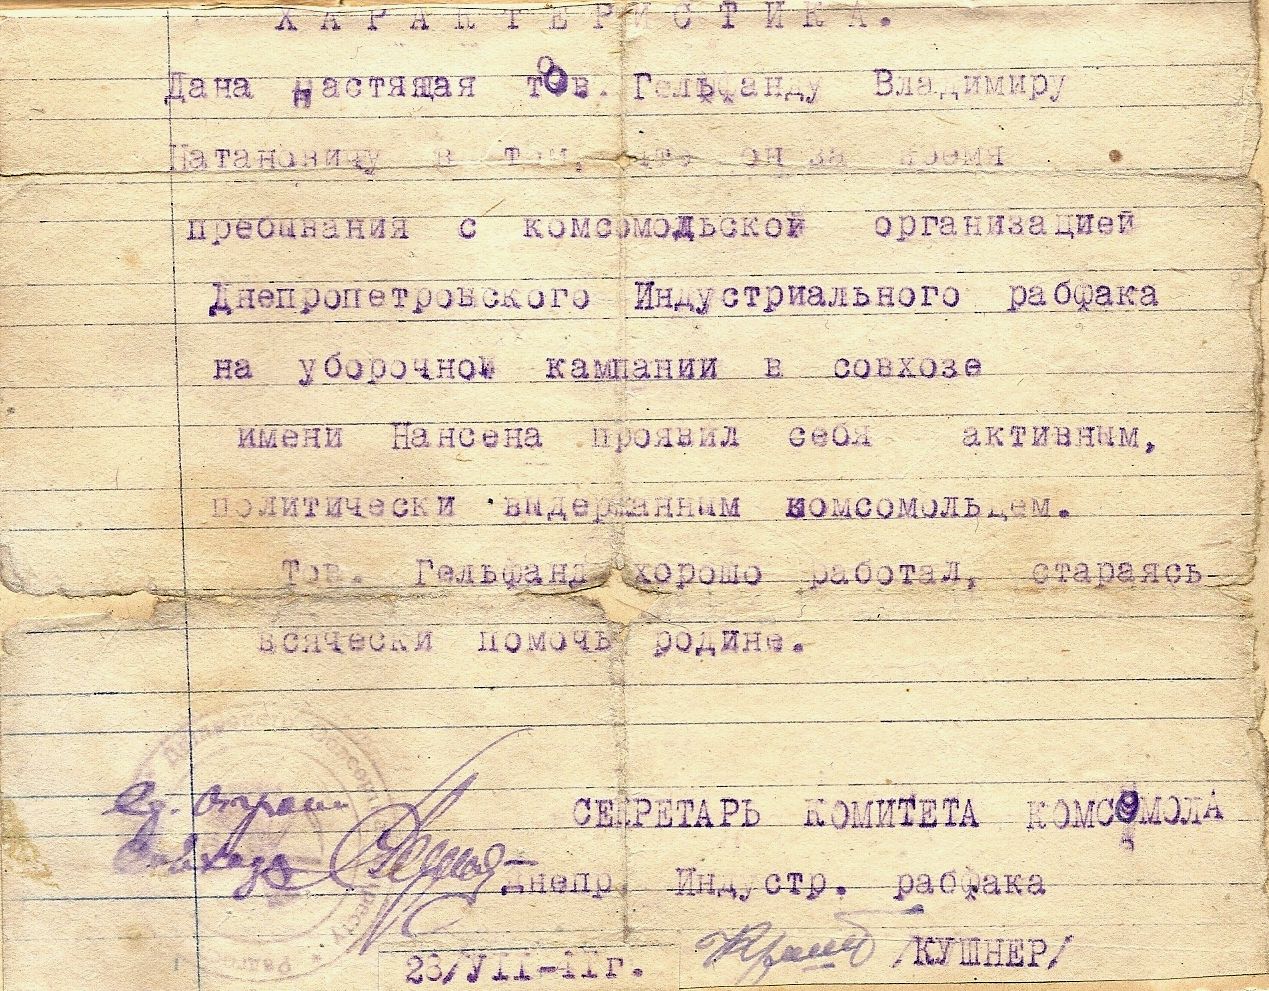 ХАРАКТЕРИСТИКА.
Дана настящая тов. Гельфанду Владимиру
Натановичу в том, что он за время
пребывания с комсомольской организацией
Днепропетровского Индустриального рабфака
на уборочной кампании в совхозе
имени Нансена проявил себя активным,
политически выдержанным комсомольцем.
Тов. Гельфанд хорошо работал, стараясь
всячески помочь родине.
СЕКРЕТАРЬ КОМИТЕТА КОМСОМОЛА
Совхоза
Днепр. Индустр. рабфака
/КУШНЕР/
23/УІІ-ІІг.